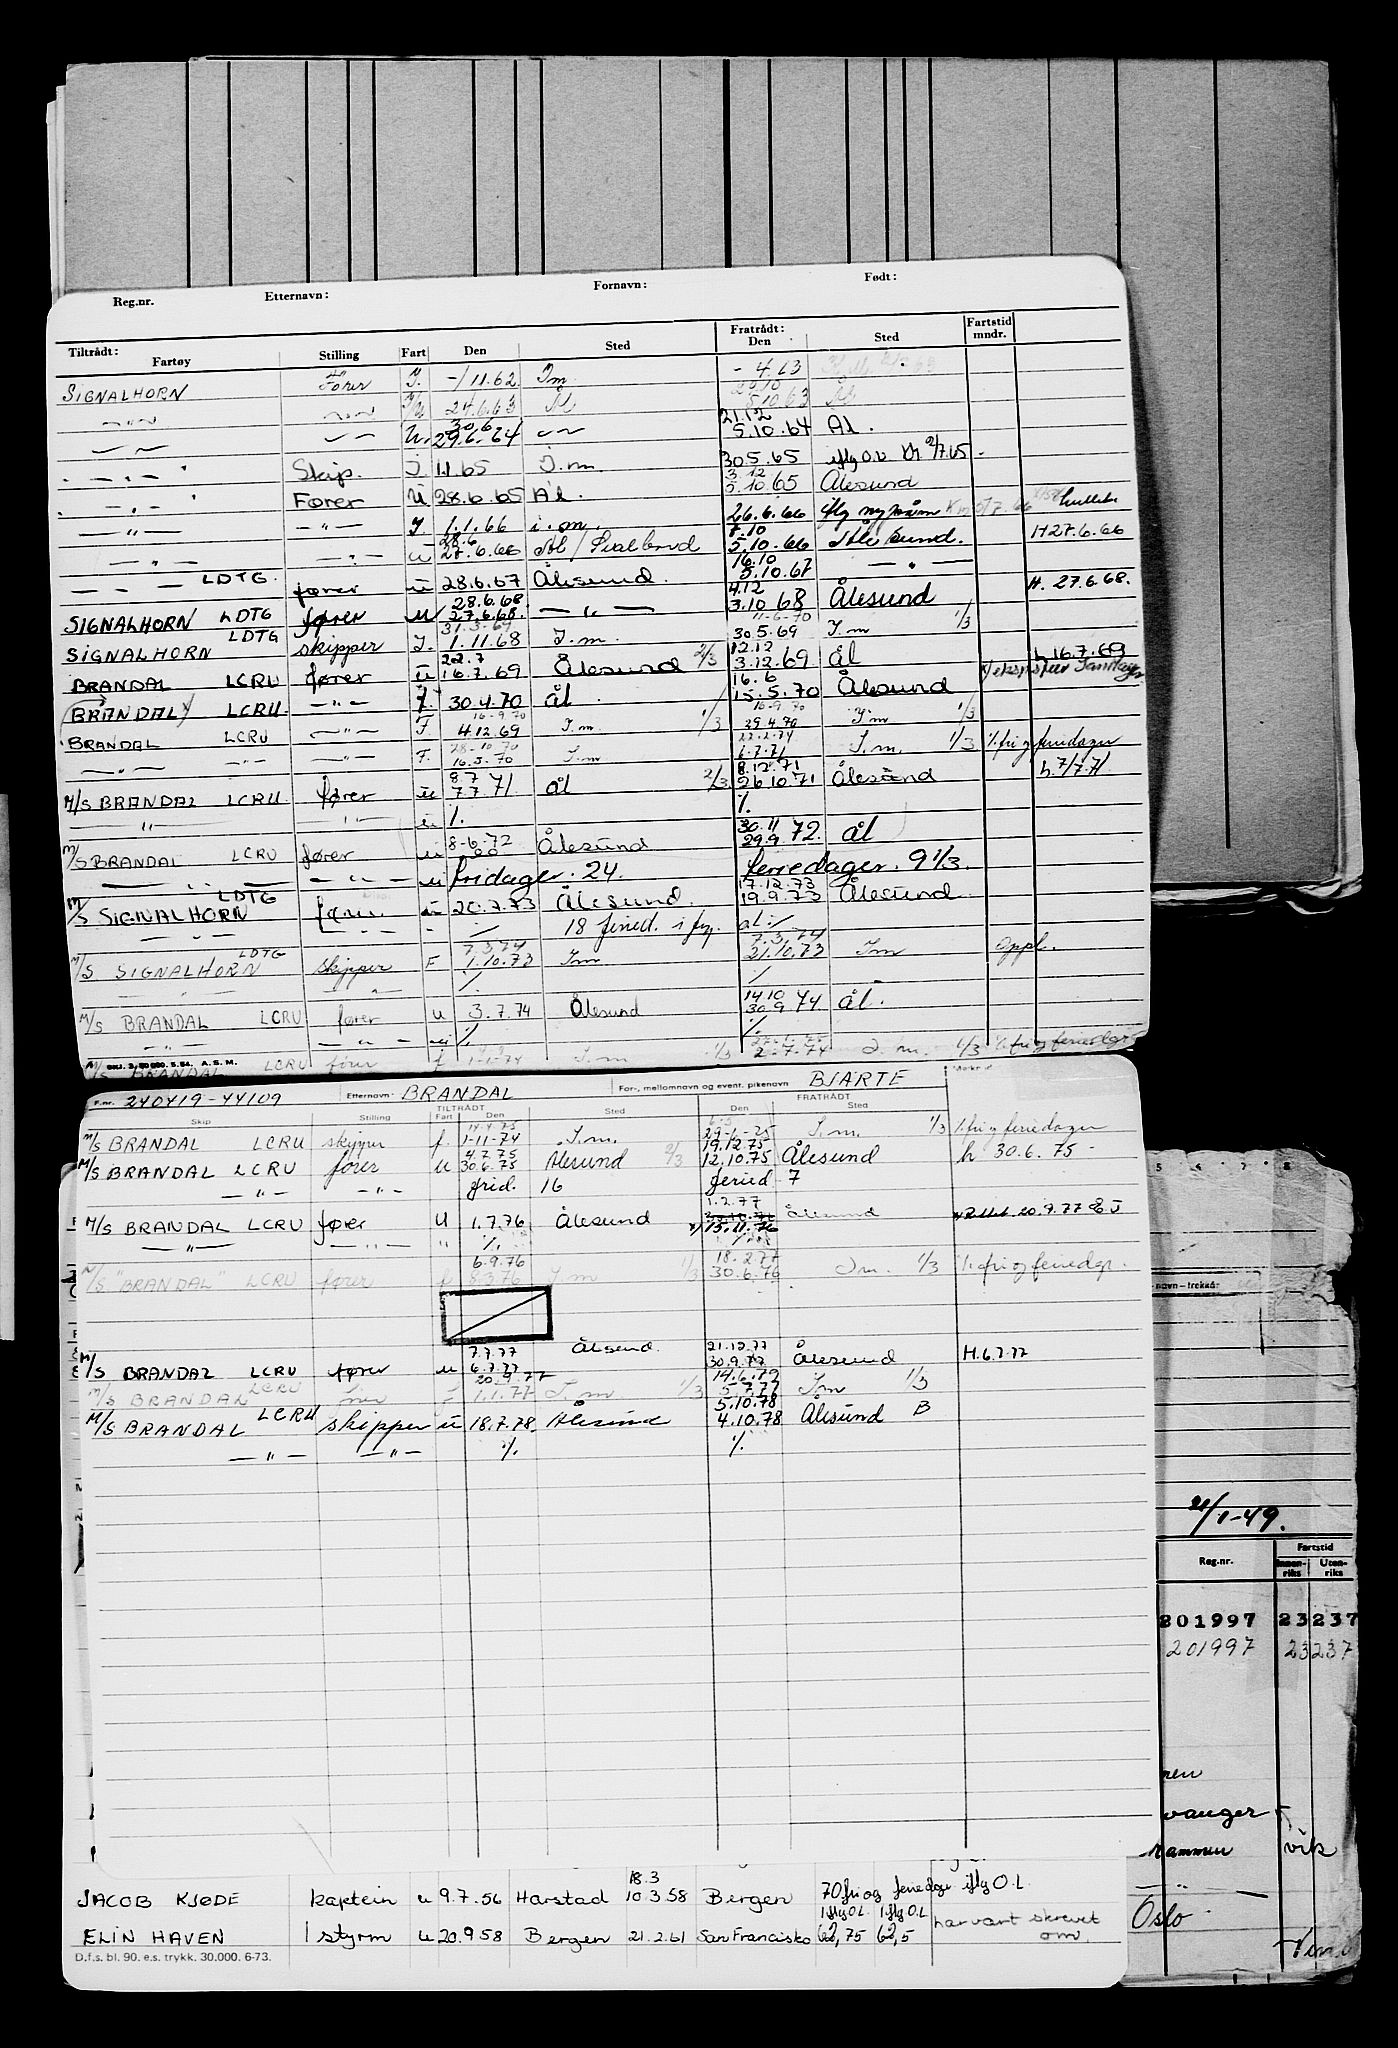 Reg.nr. Etternavn: Fornavn: Født:
Tiltrådt: Fratrådt: Fartstid
Fartøy Stilling Fart Den Sted Den Sted mndr.
SIGNALHORN Fører I. -/11.62 I.m. - 4.63
—"— —"— 24.6.63 Ål 5.10 63 Ål
30.6 21.12
—"— —"— U. 29.6.64 —"— 5.10.64 Ål.
—"— Skip. I 1.1.65 I.m. 30.5.65 iflg O.L
3.12
—"— Fører U 28.6.65 Ål. 5.10.65 Ålesund
—"— —"— I. 1.1.66 i.m. 26.6.66 iflg
28.6 7.10
—"— —"— u 27.6.66 Ål/Svalbard 5.10.66 Ålesund. H 27.6.66
16.10
—"— LDTG. fører u 28.6.67 Ålesund. 5.10.67 —"—
28.6.68 4.12 H. 27.6.68.
SIGNALHORN LDTG fører u 27.6.68. —"— 3.10 68 Ålesund
31.3.69 11-6-70
SIGNALHORN LDTG skipper I. 1.11.68 I.m. 30.5.69 I.m 1/3
22.7 12.12 h 16.7.69
BRANDAL LCRU fører u 16.7.69 Ålesund 2/3 3.12.69 Ål
16.6
(BRANDAL) LCRU. —"— f. 30.4.70 ål. 15.5.70 Ålesund
16-9.70 16-9.70
BRANDAL LCRU —"— F 4.12.69 I.m. 1/3 29.4.70 I.m 1/3
28-10 70 22.2.71
—"— —"— F. 16.5.70 I.m 6.7.71 I.m. 1/3 %.fri og feriedager
8.7 8.12.71 h.7/7.71
M/S BRANDAL LCRU. fører u 7.7.71 ål 2/3 26.10.71 Ålesund
—"— —"— u %. %.
8-6.72 30.11
M/S BRANDAL LCRU fører u Ålesund 29.9 72. ål
—"— —"— u fridager. 24. feriedager. 9 1/3.
17.12.73
M/S SIGNALHORN LDTG fører u 20.7.73 Ålesund. 19.9.73 Ålesund.
—"— —"— 18 feried. i flg. ål %
7.3.74 7.3.74
M/S SIGNALHORN LDTG skipper F 1.10.73 I.m 21.10.73 I.m oppl.
—"— —"— %. %
14.10
M/S BRANDAL LCRU fører u 3.7.74 Ålesund 30.9 74. ål.
—"— —"— u %. %.
M/S BRANDAL LCRU fører f 1-1-74 I.m. 1/3 2.7.74 I.m. 1/3 %.fri og feriedgr
A.S.M.
F.nr. 240419-44109 Etternavn: BRANDAL For-, mellomnavn og event. pikenavn BJARTE
TILTRÅDT FRATRÅDT
Skip Stilling Fart Den Sted Den Sted
14.4.75 6.3
M/S BRANDAL LCRU skipper f. 1-11-74 I.m. 29-1-75 I.m. 1/3 %.fri og feriedager
4.7.75 19.12.75
M/S BRANDAL LCRU fører u 30.6.75 Ålesund 2/3 12.10.75 Ålesund h 30.6.75 -
—"— —"— frid. 16 feried 7
1.2.77
M/S BRANDAL LCRU fører u 1.7.76 Ålesund x) 15.11.76 Ålesund x) Rettet 20.9.77 EJ
—"— —"— " %. %
6.9.76 18.2.77
M/S "BRANDAL" LCRU fører f 8.3.76 I.m 1/3 30.6.76 I.m. 1/3 %.fri og feriedgr.
7.7.77 Ålsund. 21.12.77
M/S BRANDAL LCRU fører u 6.7.77 30.9.77 Ålesund H.6.7.77
20.9.77 14.6.77
M/S BRANDAL LCRU fører f 1.1.77 I.m. 1/3 5.7.77 I.m 1/3
5.10.78
M/S BRANDAL LCRU skipper u 18.7.78. Ålesund 4.10.78 Ålesund B
—"— —"— %. %.
21/1-49.
Reg.nr. Fartstid
Innenriks Utenriks
201997 23237
201997 23237
Oslo
18.3
JACOB KJØDE kaptein u 9.7.56 Harstad 10.3.58 Bergen 70 fri og feriedager iflg O.L.
1 iflg O.L. 1 iflg O.L
ELIN HAVEN 1 styrm u 20.9.58 Bergen 21.2.61 San Francisko 62,75 62,5 har vært skrevet om.
D.f.s. bl. 90. e.s. trykk. 30.000. 6-73.